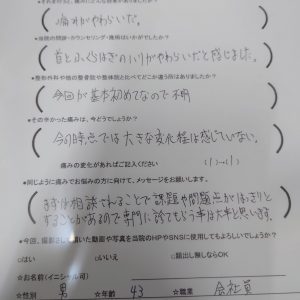 痛みがやわらいだ。
●当院の問診・カウンセリング・施術はいかがでしたか?
首とふくらはぎのハリがやわらいだと感じました。
●整形外科や他の整骨院や整体院と比べてどこか違う所はありましたか?
今回が基本初めてなので不明
●その辛かった痛みは、今どうでしょうか?
今の時点では大きな変化は感じていない。
痛みの変化があればご記入ください
●同じように痛みでお悩みの方に向けて、メッセージをお願いします。
まずは相談されることで課題や問題点がはっきりと
することがあるので専門に診てもらう事は大事と思います。
●今回、撮影させて頂いた動画や写真を当院のHPやSNSに使用してもよろしいでしょうか?
○はい ○いいえ ○顔出し無ならOK
☆お名前(イニシャル可)
☆性別 男 ☆年齢 43 ☆職業 会社員